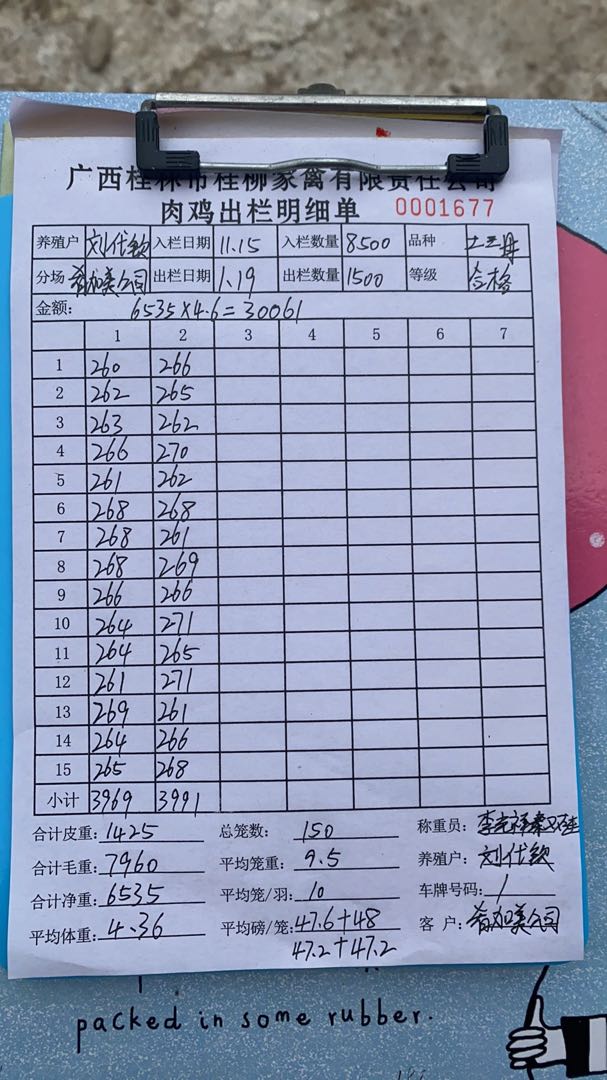 广西桂林市桂柳家禽有限责任公司
肉鸡出栏明细单 0001677
养殖户 刘代钦 入栏日期 11.15 入栏数量 8500 品种 土三母
分场 出栏日期 1.19 出栏数量 1500 等级 合格
金额: 6535×4.6=30061
1 2 3 4 5 6 7
1 260 266
2 262 265
3 263 262
4 266 270
5 261 262
6 268 268
7 268 261
8 268 269
9 266 266
10 264 271
11 264 265
12 261 271
13 269 261
14 264 266
15 265 268
小计 3969 3991
合计皮重: 1425 总笼数: 150 称重员:
合计毛重: 7960 平均笼重: 9.5 养殖户: 刘代钦
合计净重: 6535 平均笼/羽: 10 车牌号码: /
平均体重: 4.36 平均磅/笼: 47.6+48 客户:
47.2+47.2
packed in some rubber.